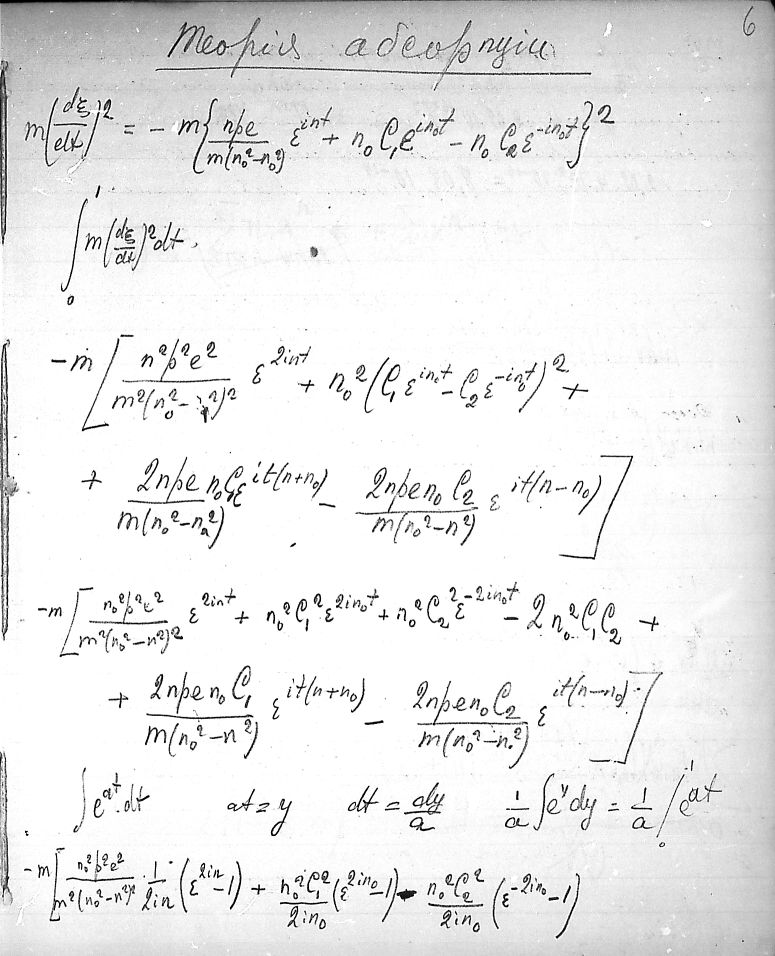 6
Теорія абсорпціи
m(dξ/dt)² = − m{npe/m(n₀²−n₀²) ε^{int} + n₀ C₁e^{in₀t} − n₀ C₂ε^{−in₀t}}²
∫₀¹ m(dξ/dt)² dt.
−m[n²p²e²/m²(n₀²− n²)² ε^{2int} + n₀²(C₁ε^{in₀t} − C₂ε^{−in₀t})² +
+ 2npe n₀C₁/m(n₀²−n²) ε^{it(n+n₀)} − 2npen₀ C₂/m(n₀²−n²) ε^{it(n−n₀)}]
−m[n₀²p²e²/m²(n₀²−n²)² ε^{2int} + n₀²C₁²ε^{2in₀t} + n₀²C₂²ε^{−2in₀t} − 2n₀²C₁C₂ +
+ 2npen₀C₁/m(n₀²−n²) ε^{it(n+n₀)} − 2npen₀C₂/m(n₀²−n²) ε^{it(n−n₀)}]
∫e^{at}.dt at = y dt = dy/a 1/a ∫e^y dy = 1/a |₀¹ e^{at}
−m[n₀²p²e²/m²(n₀²−n²)² · 1/2in (ε^{2in}−1) + n₀²C₁²/2in₀ (ε^{2in₀}−1) − n₀²C₂²/2in₀ (ε^{−2in₀}−1)